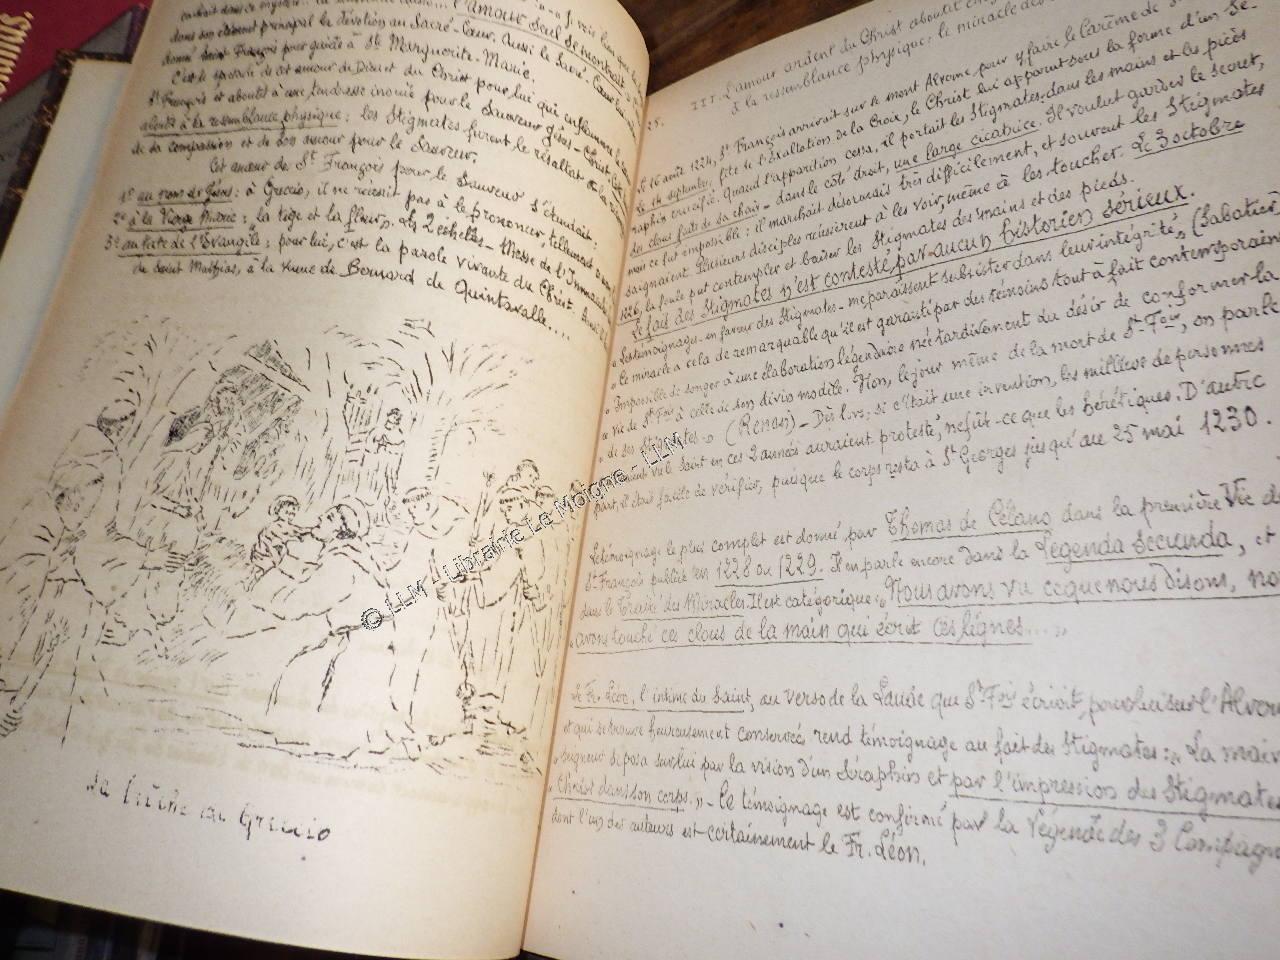 l'amour seul se montrait
dans son élément principal la dévotion au Sacré-Cœur. Aussi le Sacré-Cœur
donné Saint François pour guide à Ste Marguerite-Marie.
C'est le spectacle de cet amour de Dieu et du Christ pour lui qui enflamme
St François et aboutit à une tendresse inouïe pour le Sauveur Jésus-Christ
aboutit à la ressemblance physique: les Stigmates furent le résultat
de sa compassion et de son amour pour le Sauveur.
Cet amour de St François pour le Sauveur s'étendait:
1° au nom de Jésus: à Greccio, il ne réussit pas à le prononcer, tellement
2° à la Vierge Marie: la tige et la fleur. Les 2 échelles - Messe de l'Immaculée
3° au texte de l'Evangile; pour lui, c'est la parole vivante du Christ.
de Saint Mathias, à la vue de Bernard de Quintavalle....
La Crèche de Greccio
III. L'amour ardent du Christ aboutit
à la ressemblance physique: le miracle des
25.
Le 16 août 1224, St François arrivait sur le mont Alverne pour y faire le Carême de
Le 14 septembre, fête de l'Exaltation de la Croix, le Christ lui apparut sous la forme d'un Sé-
raphin crucifié. Quand l'apparition cessa, il portait les Stigmates dans les mains et les pieds
des clous faits de sa chair - dans le côté droit, une large cicatrice. Il voulut garder le secret,
mais ce fut impossible: il marchait désormais très difficilement, et souvent les Stigmates
saignaient. Plusieurs disciples réussirent à les voir, même à les toucher. Le 3 octobre
1226, la foule put contempler et baiser les Stigmates des mains et des pieds.
Le fait des Stigmates n'est contesté par aucun historien sérieux.
"Les témoignages en faveur des Stigmates me paraissent subsister dans leur intégrité" (Sabatier
"Le miracle a cela de remarquable qu'il est garanti par des témoins tout à fait contemporains
"Impossible de songer à une élaboration légendaire née tardivement du désir de conformer la
"vie de St Fois à celle de son divin modèle. Non, le jour même de la mort de St Fois, on parle
"de ses Stigmates" (Renan) - Dès lors, si c'était une invention, les milliers de personnes
vu le Saint en ces 2 années auraient protesté, ne fût-ce que les hérétiques. D'autre
part, il était facile de vérifier, puisque le corps resta à St Georges jusqu'au 25 mai 1230.
Le témoignage le plus complet est donné par Thomas de Celano dans la première Vie de
St François publiée en 1228 ou 1229. Il en parle encore dans la Legenda Secunda, et
dans le Traité des Miracles. Il est catégorique: "Nous avons vu ce que nous disons,
"avons touché ces clous de la main qui écrit ces lignes....."
Le Fr. Léon, l'intime du Saint, au verso de la Laude que St Fois écrivit pour lui sur l'Alverne
et qui se trouve heureusement conservée, rend témoignage au fait des Stigmates: "La main
"Seigneur se posa sur lui par la vision d'un Séraphin et par l'impression des Stigmates
"Christ dans son corps." - Ce témoignage est confirmé par la Légende des 3 Compagnons
dont l'un des auteurs est certainement le Fr. Léon.
© LLM - Librairie La Moigne - LLM